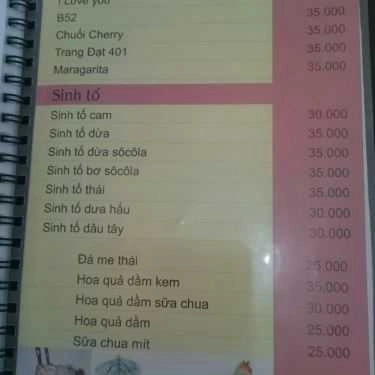 I Love you 35.000
B52 35.000
Chuối Cherry 35.000
Trang Đạt 401 35.000
Maragarita 35.000
Sinh tố
Sinh tố cam 30.000
Sinh tố dừa 35.000
Sinh tố dừa sôcôla 35.000
Sinh tố bơ sôcôla 35.000
Sinh tố thái 35.000
Sinh tố dưa hấu 30.000
Sinh tố dâu tây 30.000
Đá me thái 25.000
Hoa quả dầm kem 35.000
Hoa quả dầm sữa chua 30.000
Hoa quả dầm 25.000
Sữa chua mít 25.000